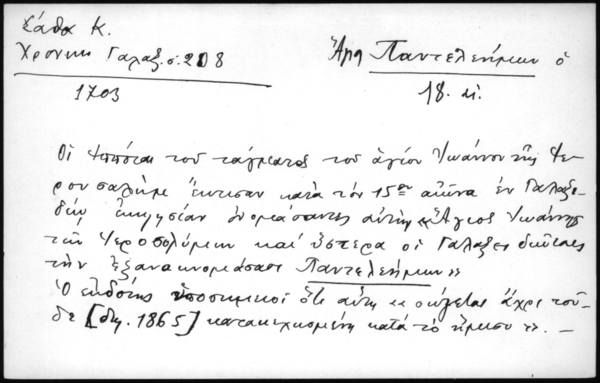 Σάθα Κ.
Χρονικ. Γαλαξ. σ. 208
1703
Άγιος Παντελεήμων ὁ
18. αἰ.
Οἱ ἱππόται τοῦ τάγματος τοῦ ἁγίου Ἰωάννου τῆς Ἱε-
ρουσαλήμ ἔκτισαν κατὰ τὸν 15ον αἰῶνα ἐν Γαλαξει-
δίῳ ἐκκλησίαν ὀνομάσαντες αὐτὴν "Ἅγιος Ἰωάννης
τῶν Ἱεροσολύμων καὶ ὕστερα οἱ Γαλαξειδιῶτες
τὴν ἐξανακνομάσασι Παντελεήμων"
Ὁ ἐκδότης ὑποσημειοῖ ὅτι αὕτη "σώζεται ἄχρι τοῦ-
δε [δη. 1865] κατακεχωσμένη κατὰ τὸ ἥμισυ". —